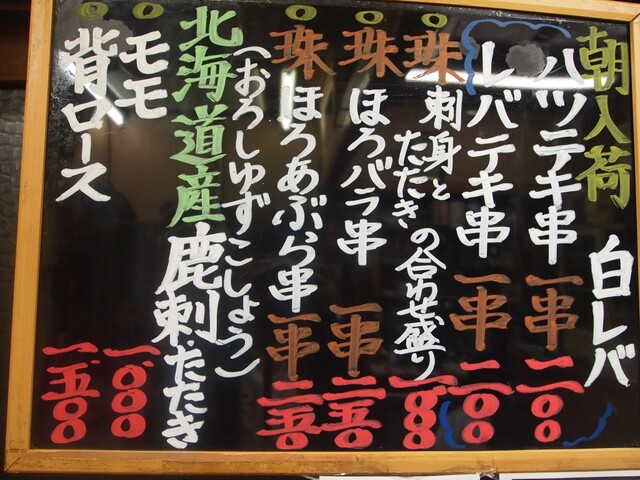 朝入荷 白レバ
ハツテキ串 一串
レバテキ串 一串 二00
珠 刺身と たたき の合わせ盛り
珠 ほろバラ串 一串 二五0
珠 ほろあぶら串 一串 二五0
(おろしゆずこしょう)
北海道産 鹿刺・たたき
モモ 一.000
背ロース 一.五00